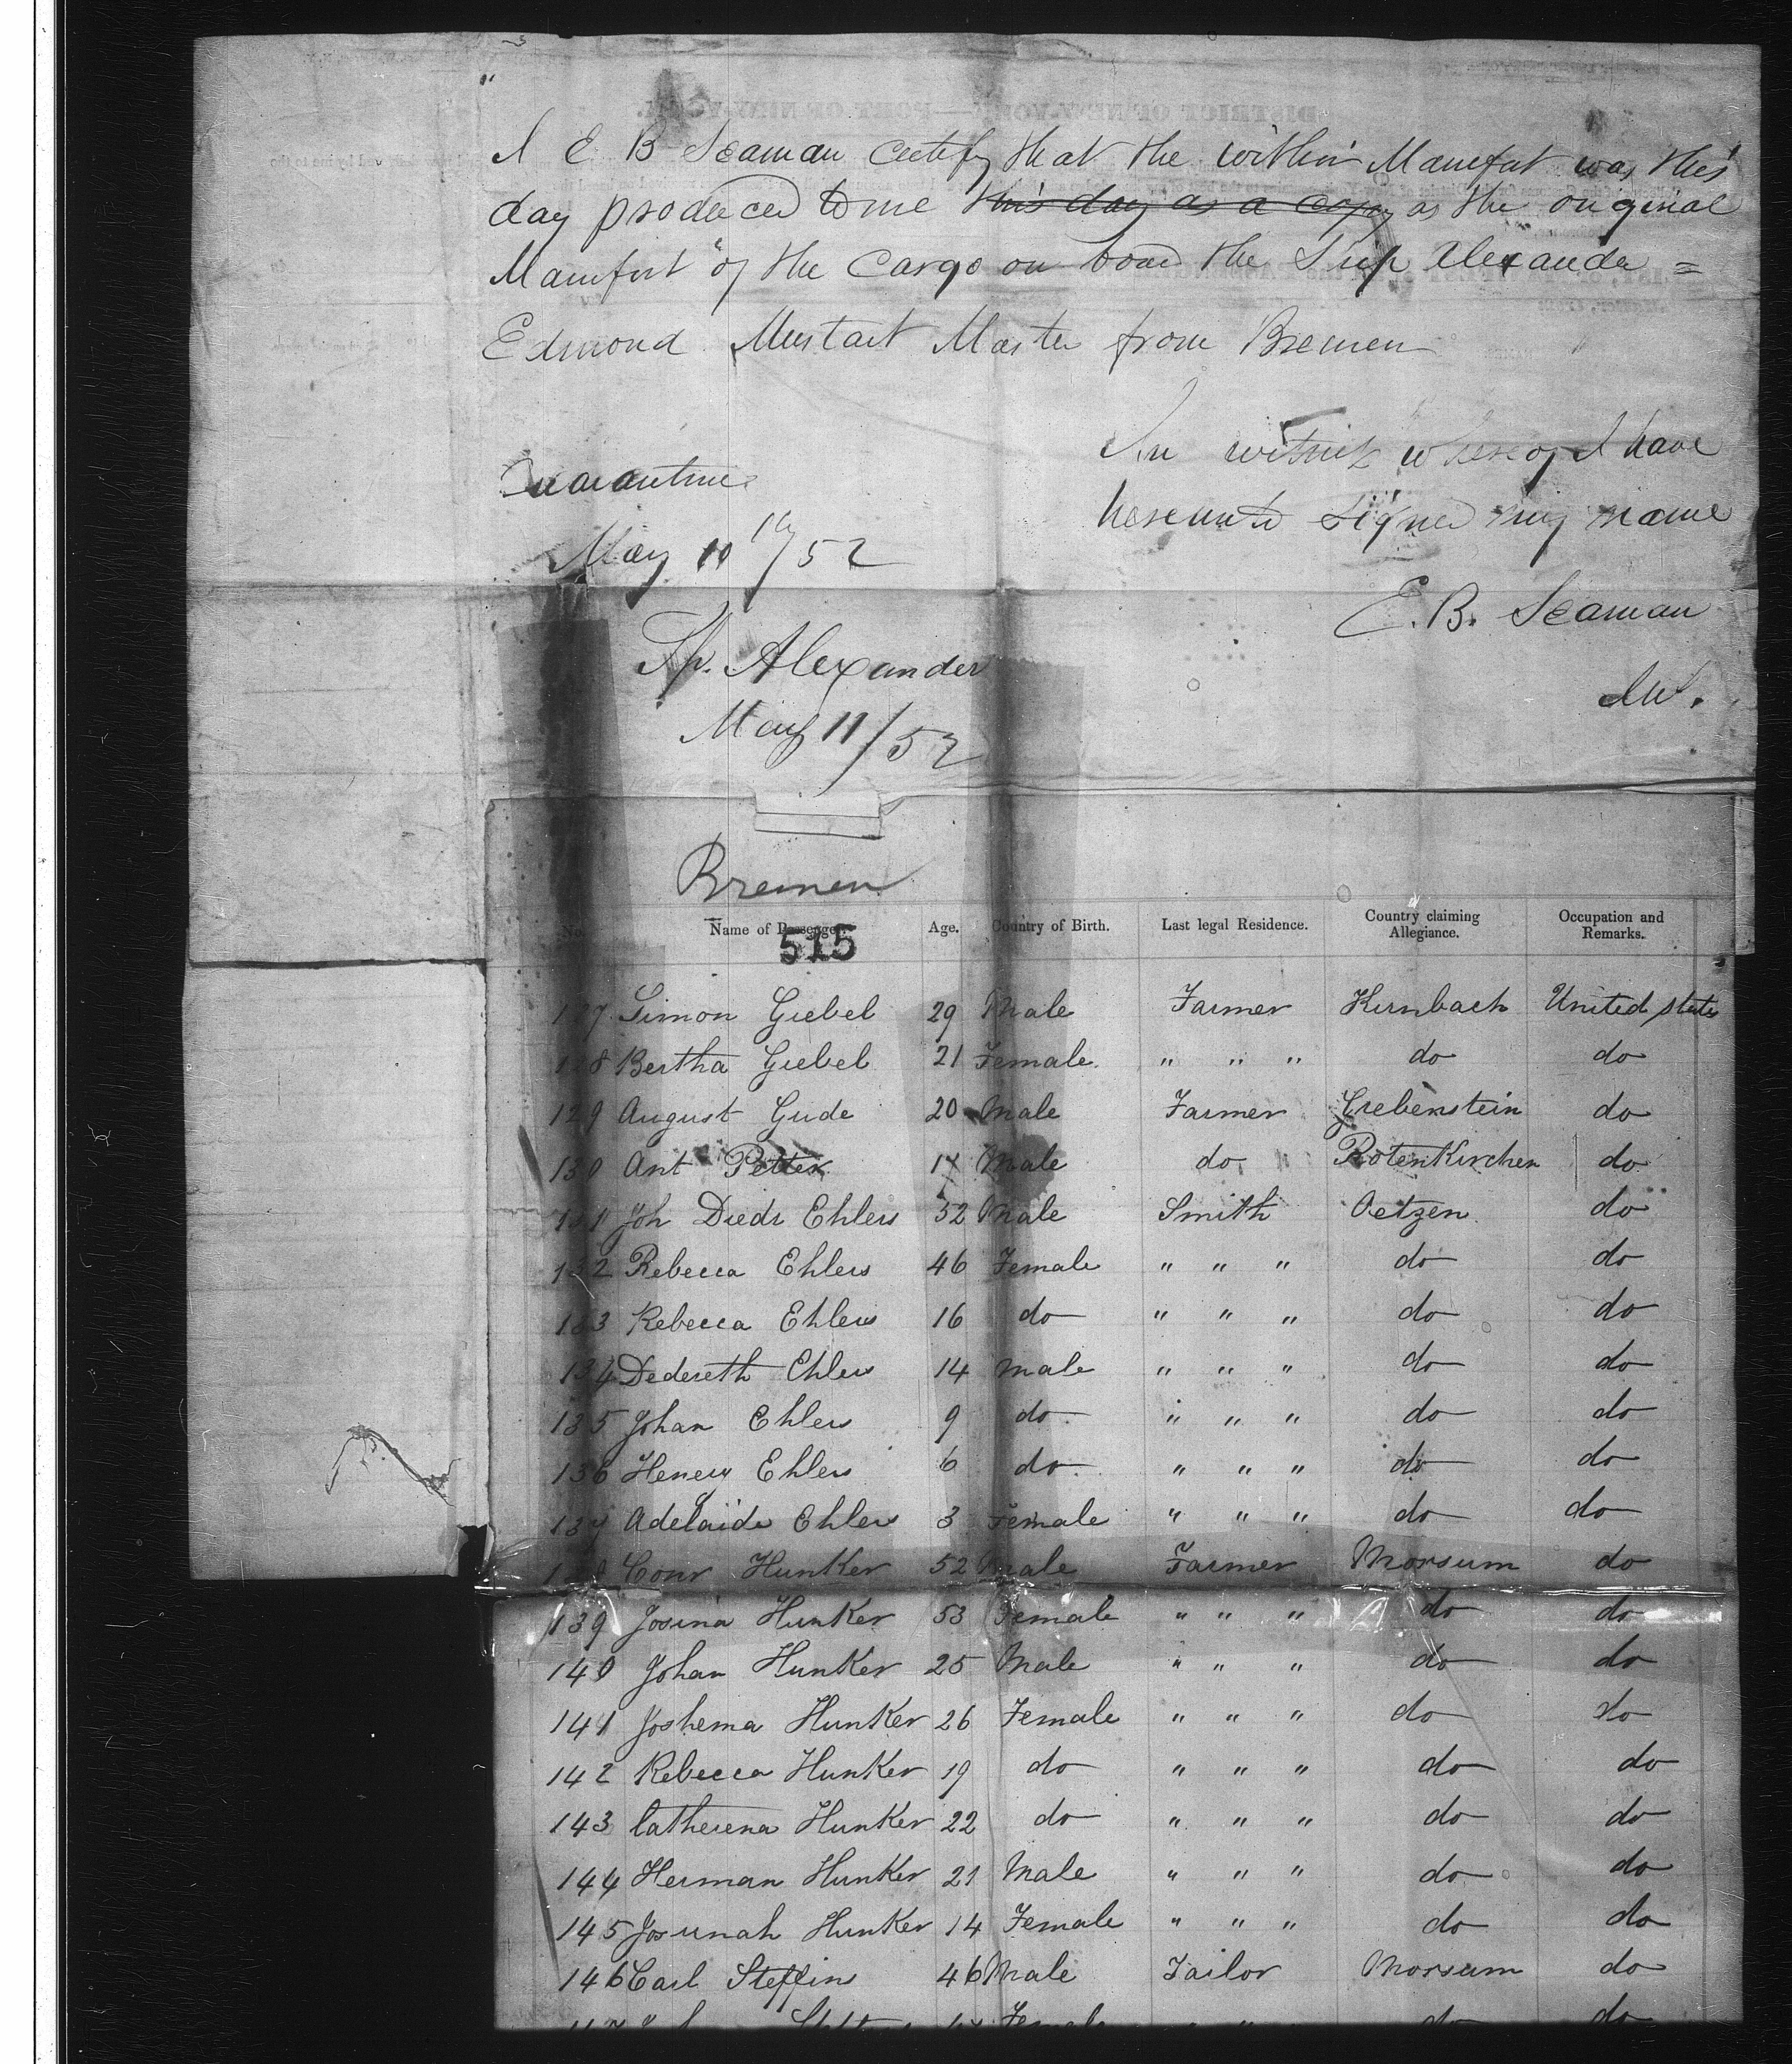 I E B Seaman certify that the within Manifest was this
day produced to me this day as a copy as the original
Manifest of the Cargo on board the Ship Alexander =
Edmond Master from Bremen
In witness whereof I have
Quarantine
hereunto signed my name
May 10 /52
E. B. Seaman
Sp. Alexander
May 11/52
Bremen
No. Name of Passenger. Age. Country of Birth. Last legal Residence. Country claiming Allegiance. Occupation and Remarks.
515
127 Simon Giebel 29 Male Farmer Hirnbach United States
128 Bertha Giebel 21 Female " " " do do
129 August Gude 20 Male Farmer Grebenstein do
130 Ant Petter Male do RotenKirchen do
131 Joh Diedr Ehlers 52 Male Smith Oetzen do
132 Rebecca Ehlers 46 Female " " " do do
133 Rebecca Ehlers 16 do " " " do do
134 Dedereth Ehlers 14 Male " " " do do
135 Johan Ehlers 9 do " " " do do
136 Henery Ehlers 6 do " " " do do
137 Adelaide Ehlers 3 Female " " " do do
138 Conr Hunker 52 Male Farmer Morsum do
139 Josina Hunker 53 Female " " " do do
140 Johan Hunker 25 Male " " " do do
141 Joshema Hunker 26 Female " " " do do
142 Rebecca Hunker 19 do " " " do do
143 Catherena Hunker 22 do " " " do do
144 Herman Hunker 21 Male " " " do do
145 Josunah Hunker 14 Female " " " do do
146 Carl Steffins 46 Male Tailor Morsum do